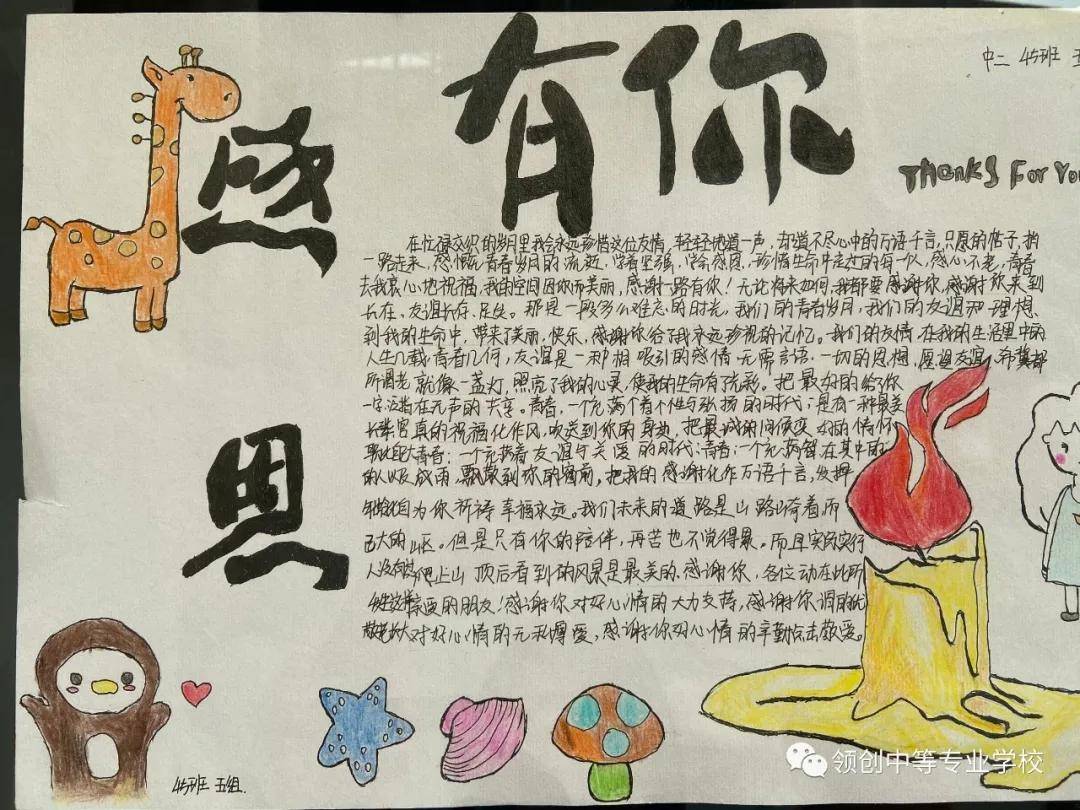 感恩
有你
中二 45班 五
Thanks For You
在忙碌交织的岁月里我会永远珍惜这位友情,轻轻地道一声,却道不尽心中的万语千言,只愿的帖子,拍
一路走来,感慨青春岁月的流逝,学着坚强,学会感恩,珍惜生命中走过的每一人,感心不老,青春
去我衷心地祝福,我的空间因你而美丽,感谢一路有你!无论将来如何,我都要感谢你,感谢你来到
长在、友谊长存、足矣。那是一段多么难忘的时光,我们的青春岁月,我们的友谊和理想、
到我的生命中,带来了美丽、快乐,感谢你给了我永远珍视的记忆。我们的友情,在我的生活里中的
人生几载,青春几何,友谊是一种相吸引的感情,无需言语,一切的思想,愿望友谊,希冀都
就像一盏灯,照亮了我的心灵,使我的生命有了光彩。把最好的给了你
在无声的共享。青春,一个充满个着个性与张扬的时代;是有一种最美
真的祝福化作风,吹送到你的身边,把最诚的问候变
青春;一个充满着友谊与关爱的时代;青春;一个充满智在其中的
成雨,飘散到你的窗前,把我的感谢化作万语千言,发挥
为你祈祷幸福永远。我们未来的道路是山路崎着而
大的山区。但是只有你的陪伴,再苦也不觉得累。而且实际实行
爬上山顶后看到的风景是最美的,感谢你,各位动在此所
重要的朋友!感谢你对好心情的大力支持,感谢你调的优
对好心情的无私博爱,感谢你对心情的辛勤点击敬爱。
45班 五组.
领创中等专业学校